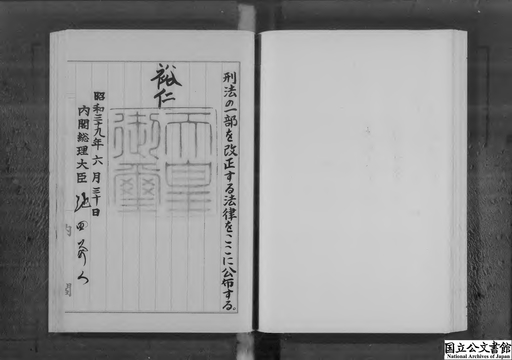 刑法の一部を改正する法律をここに公布する。
裕仁
天皇
御璽
昭和三十九年六月三十日
内閣総理大臣 池田勇人
国立公文書館
National Archives of Japan